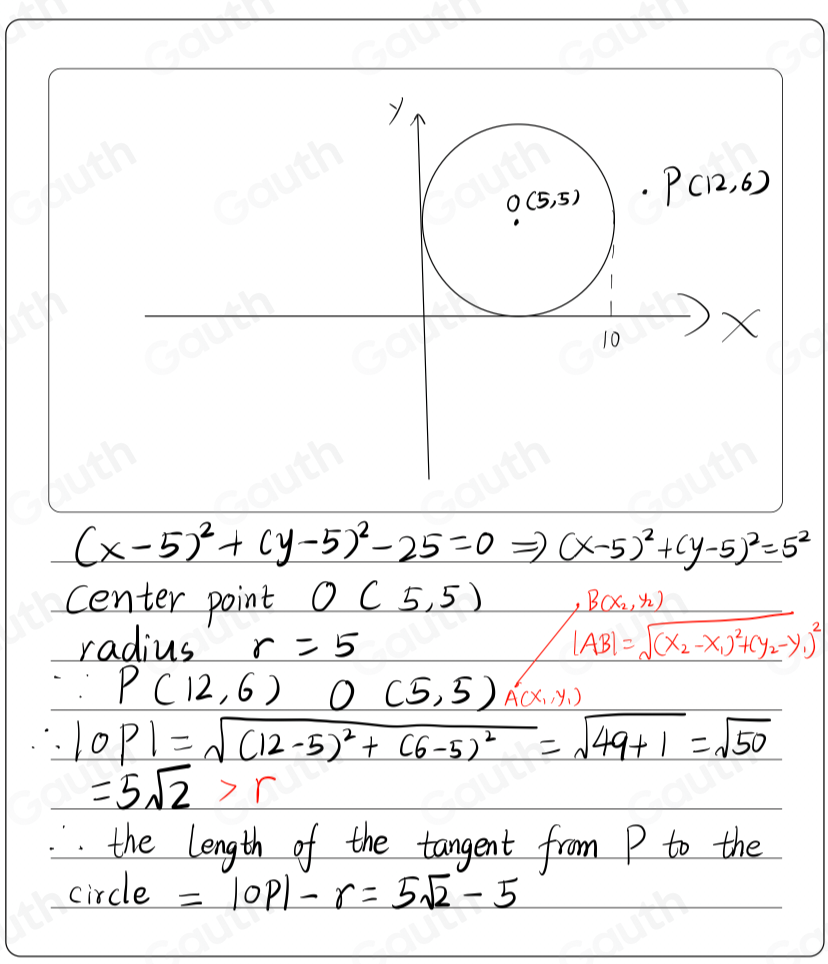 y
O(5,5)
· P(12,6)
10
X
(x-5)²+(y-5)²-25=0 ⇒ (x-5)²+(y-5)²=5²
Center point O(5,5)
B(x₂,y₂)
radius r=5
|AB|=√(x₂-x₁)²+(y₂-y₁)²
∵ P(12,6) O(5,5)
A(x₁,y₁)
∴ |OP|=√(12-5)²+(6-5)² =√49+1 =√50
=5√2 >r
∴ the length of the tangent from P to the
circle = |OP|-r=5√2-5
Gauth